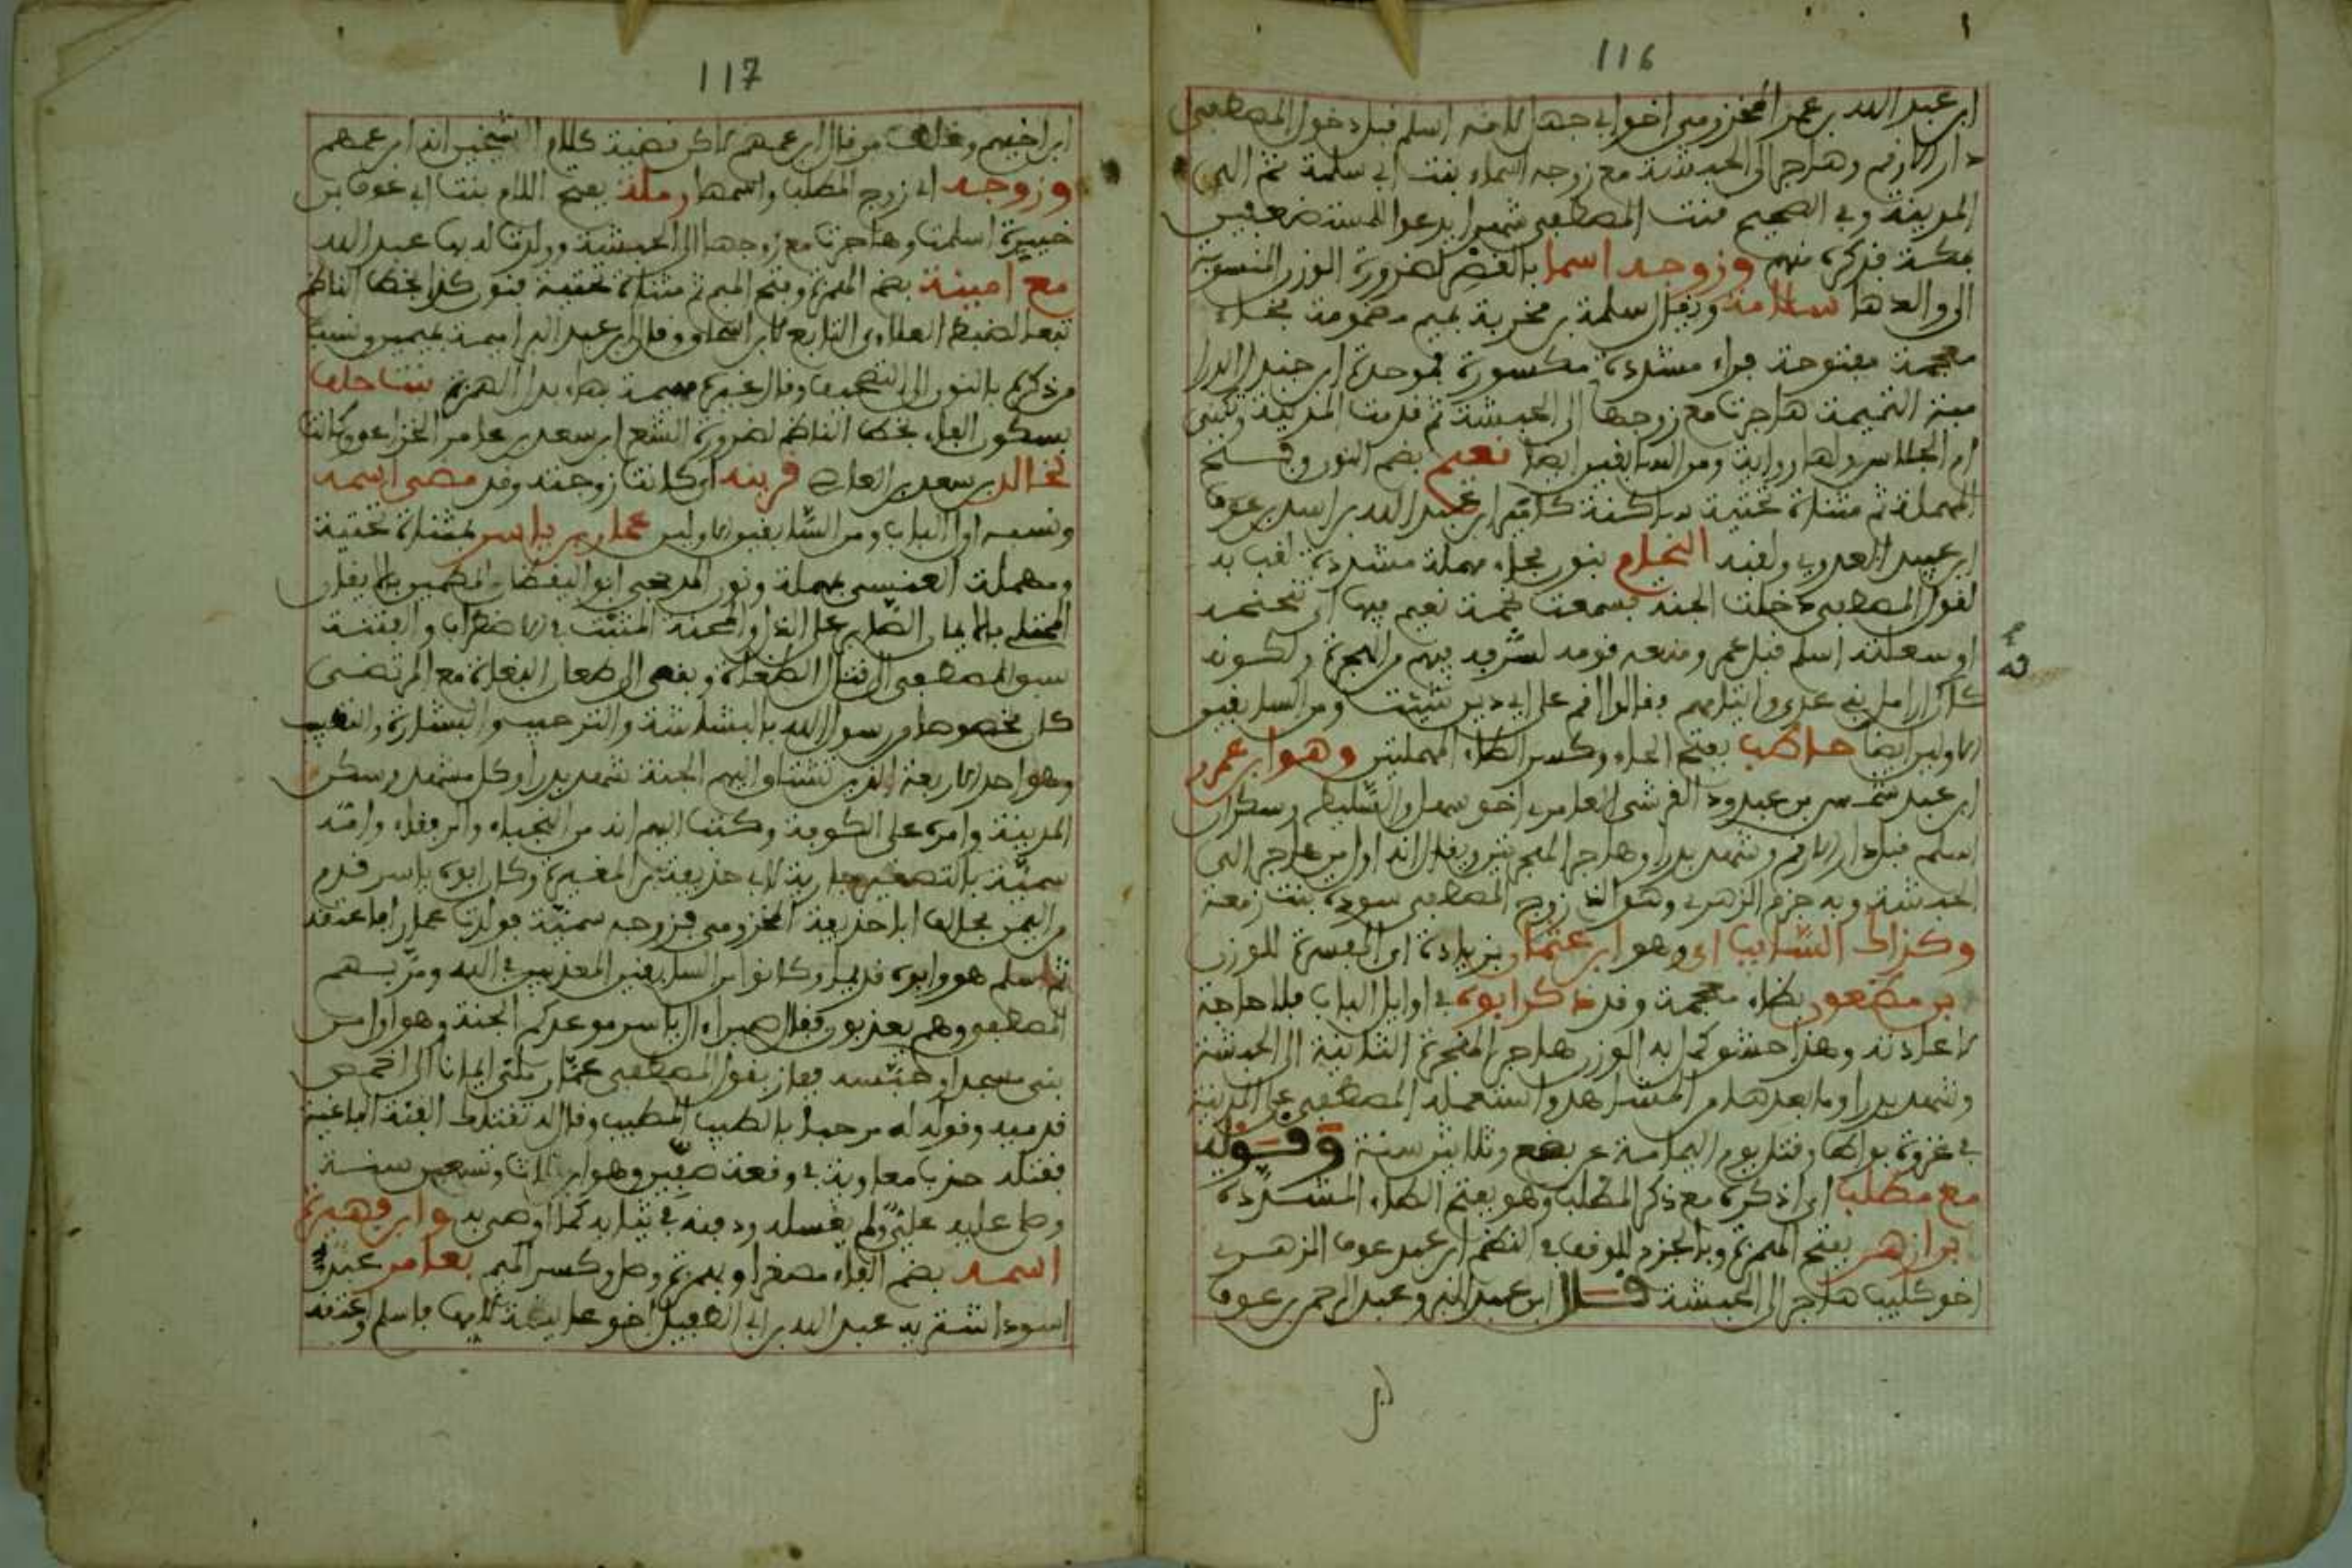 116
ابن عبد الله بن عمر المخزومي اخو ابي جهل لامه اسلم قبل دخول المصطفى
دار الارقم وهاجر الى الحبشة مع زوجه اسماء بنت ابي سلمة ثم الى
المدينة وفي الصحيح قنت المصطفى شهرا يدعوا للمستضعفين
بمكة فذكره منهم وزوجه اسما بالقصر لضرورة الوزن المنسوبة
الى والدها سلامة ويقال سلمة بن مخربة بميم مضمومة بخاء
معجمة مفتوحة فراء مشددة مكسورة فموحدة ابن جندل الدرا
مية التميمية هاجرت مع زوجها الى الحبشة ثم قدمت المدينة وتكنى
ام الجلاس ولها رواية ومن السابقين ايضا نعيم بضم النون وفتح
المهملة ثم مثناة تحتية ساكنة كاتم ابن عبد الله بن اسد بن عوف
ابن عبيد العدوي ولقبه النحام بنون فحاء مهملة مشددة لقب به
لقول المصطفى دخلت الجنة فسمعت نحمة نعيم فيها اي تنحنحه
او سعلته اسلم قبل عمر ومنعه قومه لشرفه فيهم من الهجرة ولكونه
كان ارامل بني عدي وايتامهم فقالوا اقم على اي دين شيت ومن السابقين
الاولين ايضا حاطب بفتح الحاء وكسر الطاء المهملتين وهو ابن عمرو
ابن عبد شمس بن عبد ود القرشي العامري اخو سهل والسليط وسكران
اسلم قبل دار الارقم وشهد بدرا وهاجر الهجرتين ويقال انه اول من هاجر الى
الحبشة وبه جزم الزهري وهو الذي زوج المصطفى سودة بنت زمعة
وكذاك السايب اي وهو ابن عثمان بزيادة اي المفسرة للوزن
بن مظعون بظاء معجمة وقد ذكر ابوه في اوايل الباب فلا حاجة
لاعادته وهذا حشو كمل به الوزن هاجر الهجرة الثانية الى الحبشة
وشهد بدرا وما بعدها من المشاهد واستعمله المصطفى على المدينة
في غزوة بواط وقتل يوم اليمامة عن بضع وثلاثين سنة وقوله
مع مطلب اي اذكره مع ذكر المطلب وهو بفتح الطاء المشددة
بن ازهر بفتح الهمزة وبالجزم للوقف في النظم ابن عبد عوف الزهري
اخو كليب هاجر الى الحبشة قال ابن عبد البر وعبد الرحمن بن عوف
117
ابن اخيهم وغلط من قال ابن عمهم لاكن قضية كلام الشيخين انه ابن عمهم
وزوجه اي زوج المطلب واسمها رملة بفتح اللام بنت ابي عوف بن
خبيرة اسلمت وهاجرت مع زوجها الى الحبشة وولدت له بها عبد الله
مع امينة بضم الهمزة وفتح الميم ثم مثناة تحتية فنون كذا بخط الناظم
تبعا لضبط العطاوي التابع لابن اسحاق وقال ابن عبد البر اميمة بميمين ونسب
من ذكره بالنون الى التصحيف وقال غيره همينة بهاء بدل الهمزة بنت خلف
بسكون الفاء بخط الناظم لضرورة الشعر ابن سعد بن عامر الخزاعي وكانت
لخالد بن سعد بن العاص قرينه اي كانت زوجته وقد مضى اسمه
ونسبه اول الباب ومن السابقين الاولين عمار بن ياسر بمثناة تحتية
ومهملة العنسي بمهملة ونون المدحجي ابو اليقضان المطمين بالايمان
الممتلي بالايمان الصابر على الذل والمحنة المثبت في الاضطراب والفتنة
سبق المصطفى الى قتال الطغاة وبقى الى طعان البغاة مع المرتضى
كان مخصوصا من رسول الله بالبشاشة والترحيب والبشارة والتطييب
وهو احد الاربعة الذين تشتاق اليهم الجنة شهد بدرا وكل مشهد وسكن
المدينة وامره على الكوفة وكتب اليهم انه من النجباء والرفقاء وامه
سمية بالتصغير جارية لابي حذيفة بن المغيرة وكان ابوه ياسر قدم
من اليمن فحالف ابا حذيفة المخزومي فزوجه سمية فولدت عمارا فاعتقه
ثم اسلم هو وابوه قديما وكانوا من السابقين المعذبين في الله ومر بهم
المصطفى وهم يعذبون فقال صبرا ال ياسر موعدكم الجنة وهو اول من
بنى مسجدا وحسبه فضلا بقول المصطفى عمار ملئ ايمانا الى اخمص
قدميه وقوله له مرحبا بالطيب المطيب وقال له تقتلك الفية الباغية
فقتله حزب معاوية في وقعة صفين وهو ابن ثلاث وتسعين سنة
وصلى عليه علي ولم يغسله ودفنه في ثيابه كما اوصى به وابن فهيرة
اسمه بضم الفاء مصغرا وبهمزة وصل وكسر الميم بعامر عبدٌ
اسود اشتريه عبد الله بن ابي الطفيل اخو عايشة لامها فاسلم واعتقه